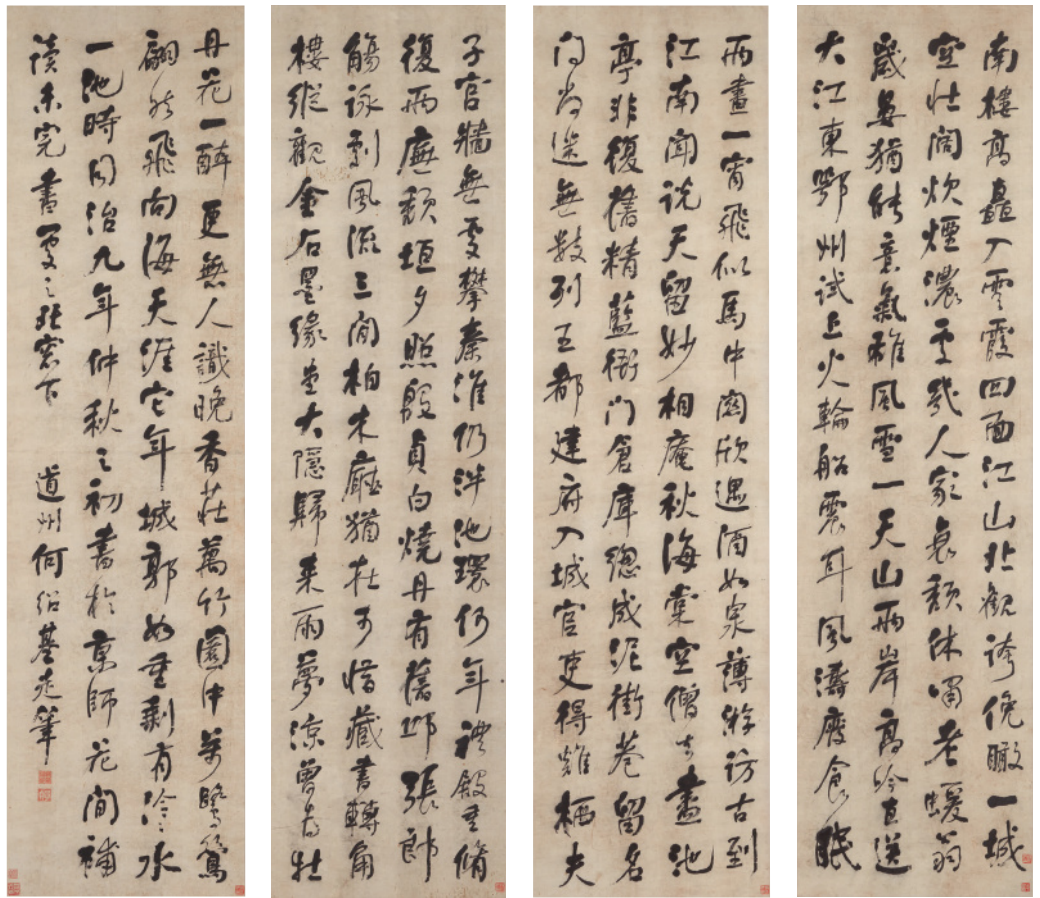 南樓高矗入雲霞四面江山壯觀誇俛瞰一城
空壯闊炊煙濃處幾人家哀顏休唱老蝯翁
歲晏猶能意氣雄風雪一天山兩岸高吟直送
大江東鄂州試上火輪船震耳風濤廢食眠
兩晝一宵飛似馬中閒欣遇酒如泉薄游訪古到
江南聞說天留妙相庵秋海棠空僧去盡池
亭非復舊精藍衙門倉庫總成泥街巷留名
向尚迷無數列五都建府入城官吏得雞栖夫
子官牆無處攀秦淮仍泮池環何年禮殿重脩
復兩廡頹垣夕照殷貞白燒丹有舊邱張郎
觴詠剩風流三間柏木廳猶在可惜藏書轉角
樓縱觀金石墨緣堂大隱歸來雨夢涼曾為牡
丹花一醉更無人識晚香莊萬竹園中萬鷺鴛
翩然飛向海天涯它年城郭如重剩有泠泠水
一池時同治九年仲秋之初書於京師花間補
讀未完書屋之北窗下 道州何紹基走筆